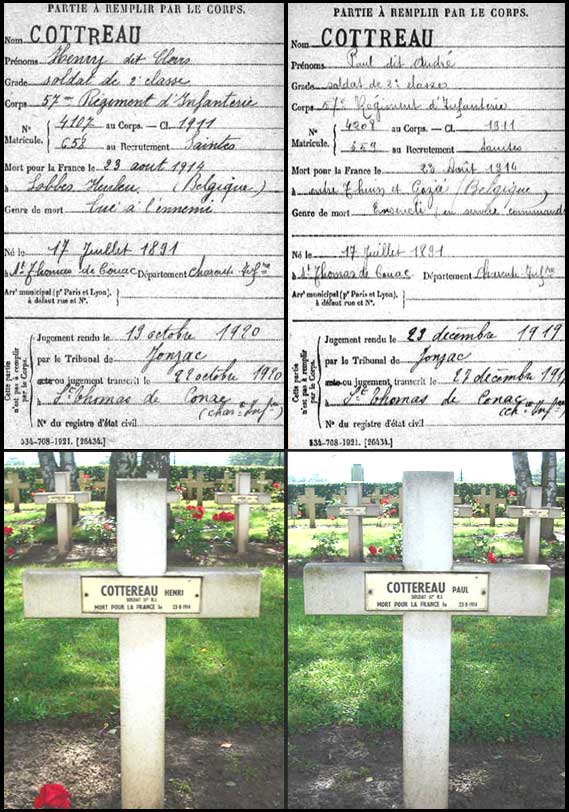 PARTIE À REMPLIR PAR LE CORPS.
Nom COTTREAU
Prénoms Henry dit Clovis
Grade soldat de 2e classe
Corps 57me Régiment d'Infanterie
No 4107 au Corps. — Cl. 1911
Matricule. 658 au Recrutement Saintes
Mort pour la France le 23 août 1914
à Lobbes Heuleu (Belgique)
Genre de mort Tué à l'ennemi
Né le 17 Juillet 1891
à St Thomas de Conac Département Charente Infre
Arrt municipal (pr Paris et Lyon),
à défaut rue et No.
Cette partie n'est pas à remplir par le Corps.
Jugement rendu le 19 octobre 1920
par le Tribunal de Jonzac
acte ou jugement transcrit le 22 octobre 1920
à St Thomas de Conac
(Charte Infre)
No du registre d'état civil
534-708-1921. [26434.]
PARTIE À REMPLIR PAR LE CORPS.
Nom COTTREAU
Prénoms Paul dit André
Grade soldat de 2e classe
Corps 57e Régiment d'Infanterie
No 4208 au Corps. — Cl. 1911
Matricule. 659 au Recrutement Saintes
Mort pour la France le 23 Août 1914
à entre Thuin et Gozé (Belgique)
Genre de mort en service commandé
Né le 17 Juillet 1891
à St Thomas de Conac Département Charente Infre
Arrt municipal (pr Paris et Lyon),
à défaut rue et No.
Cette partie n'est pas à remplir par le Corps.
Jugement rendu le 23 décembre 1919
par le Tribunal de Jonzac
acte ou jugement transcrit le 27 décembre
à St Thomas de Conac
(Chte Infre)
No du registre d'état civil
534-708-1921. [26434.]
COTTEREAU HENRI
SOLDAT 57e R.I.
MORT POUR LA FRANCE le 23-8-1914
COTTEREAU PAUL
SOLDAT 57e R.I.
MORT POUR LA FRANCE le 23-8-1914